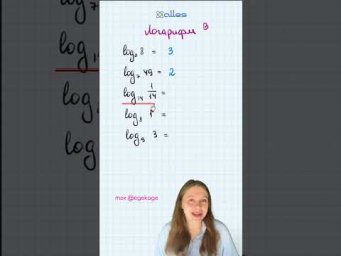 alles
Логарифм 9
log₂ 8 = 3
log₇ 49 = 2
log₁₄ 1/14 =
log =
log₉ 3 =
max: @egekage
log
log
log
log